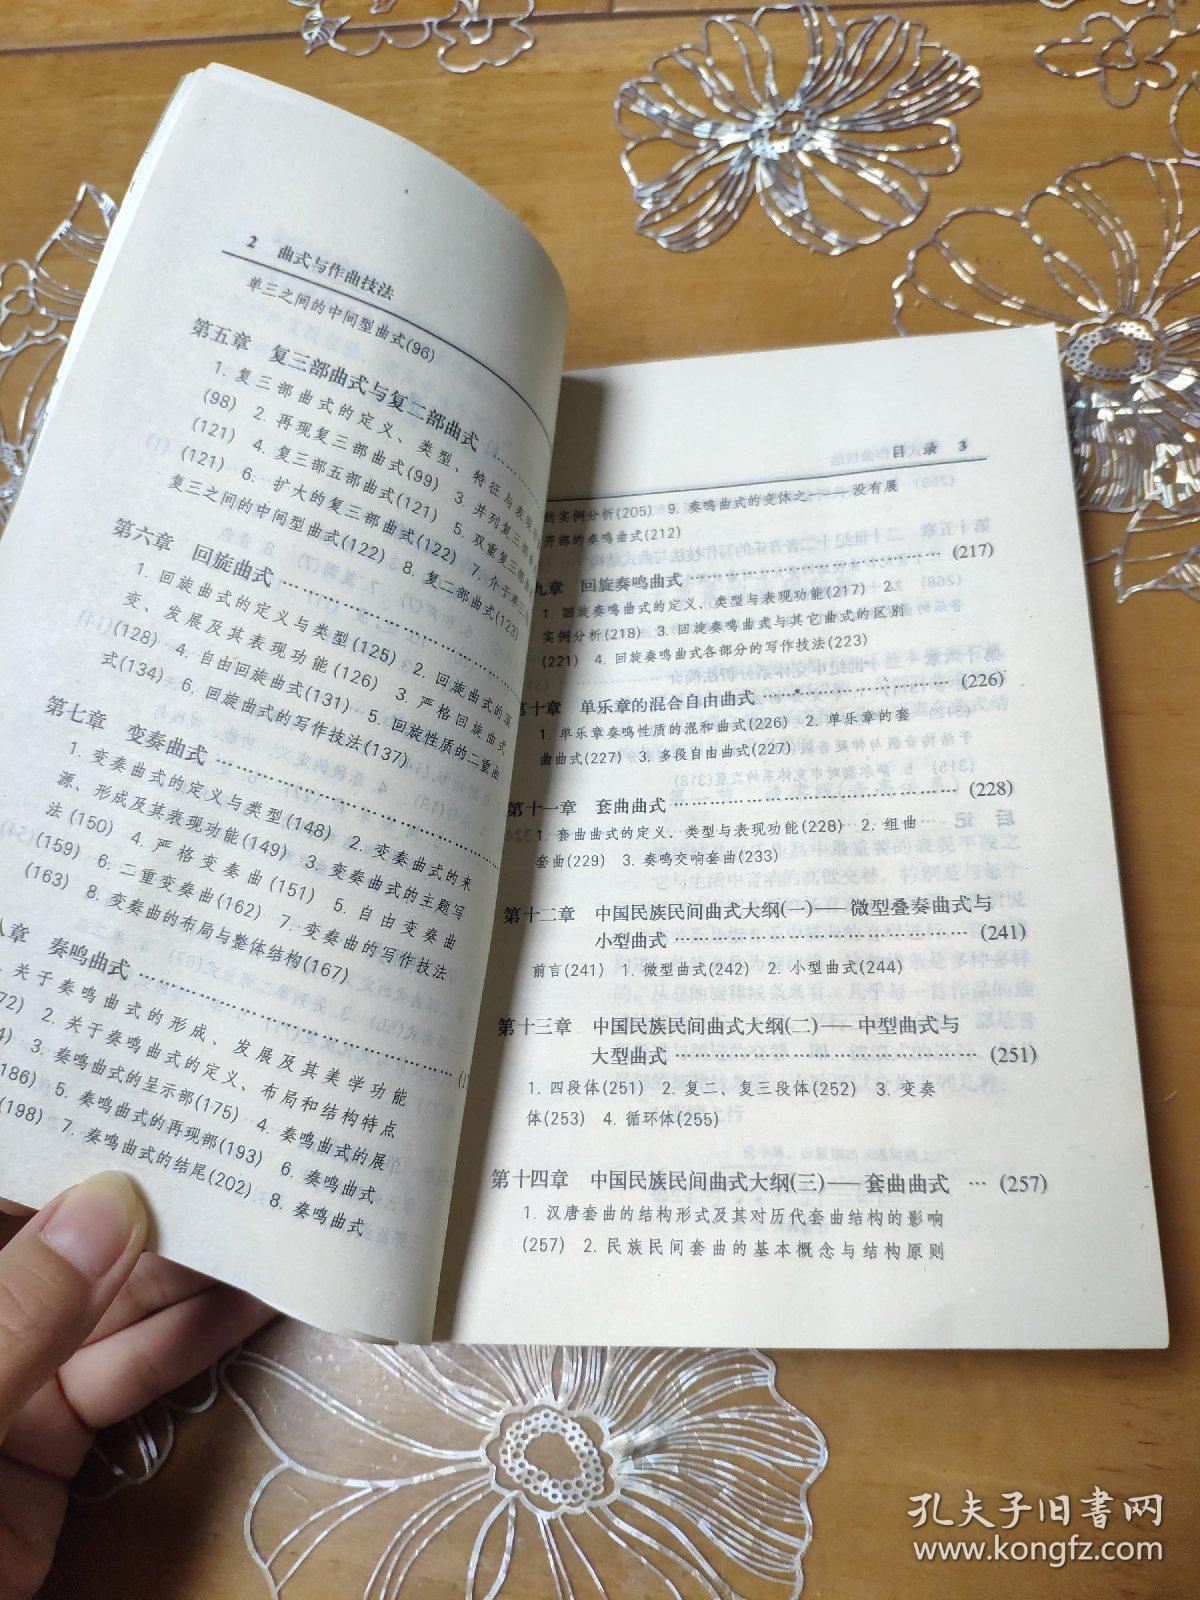 2 曲式与作曲技法
单三之间的中间型曲式(96)
第五章 复三部曲式与复二部曲式 ………
1. 复三部曲式的定义、类型、特征与表现
(98) 2. 再现复三部曲式(99) 3. 并列复三部
(121) 4. 复三部五部曲式(121) 5. 双重复三部
(121) 6. 扩大的复三部曲式(122) 7. 介于单三
复三之间的中间型曲式(122) 8. 复二部曲式(123)
第六章 回旋曲式 ………
1. 回旋曲式的定义与类型(125) 2. 回旋曲式的演
变、发展及其表现功能(126) 3. 严格回旋曲式
(128) 4. 自由回旋曲式(131) 5. 回旋性质的二重曲
式(134) 6. 回旋曲式的写作技法(137)
第七章 变奏曲式 ………
1. 变奏曲式的定义与类型(148) 2. 变奏曲式的来
源、形成及其表现功能(149) 3. 变奏曲式的主题写
法(150) 4. 严格变奏曲(151) 5. 自由变奏曲
(159) 6. 二重变奏曲(162) 7. 变奏曲的写作技法
(163) 8. 变奏曲的布局与整体结构(167)
八章 奏鸣曲式 ………
关于奏鸣曲式的形成、发展及其美学功能
72) 2. 关于奏鸣曲式的定义、布局和结构特点
4) 3. 奏鸣曲式的呈示部(175) 4. 奏鸣曲式的展
186) 5. 奏鸣曲式的再现部(193) 6. 奏鸣曲式
(198) 7. 奏鸣曲式的结尾(202) 8. 奏鸣曲式
目录 3
的实例分析(205) 9. 奏鸣曲式的变体之一——没有展
开部的奏鸣曲式(212)
九章 回旋奏鸣曲式 ……… (217)
1. 回旋奏鸣曲式的定义、类型与表现功能(217) 2.
实例分析(218) 3. 回旋奏鸣曲式与其它曲式的区别
(221) 4. 回旋奏鸣曲式各部分的写作技法(223)
第十章 单乐章的混合自由曲式 ……… (226)
1. 单乐章奏鸣性质的混和曲式(226) 2. 单乐章的套
曲曲式(227) 3. 多段自由曲式(227)
第十一章 套曲曲式 ……… (228)
1. 套曲曲式的定义、类型与表现功能(228) 2. 组曲
套曲(229) 3. 奏鸣交响套曲(233)
第十二章 中国民族民间曲式大纲(一)——微型叠奏曲式与
小型曲式 ……… (241)
前言(241) 1. 微型曲式(242) 2. 小型曲式(244)
第十三章 中国民族民间曲式大纲(二)——中型曲式与
大型曲式 ……… (251)
1. 四段体(251) 2. 复二、复三段体(252) 3. 变奏
体(253) 4. 循环体(255)
第十四章 中国民族民间曲式大纲(三)——套曲曲式 … (257)
1. 汉唐套曲的结构形式及其对历代套曲结构的影响
(257) 2. 民族民间套曲的基本概念与结构原则
孔夫子旧书网
www.kongfz.com